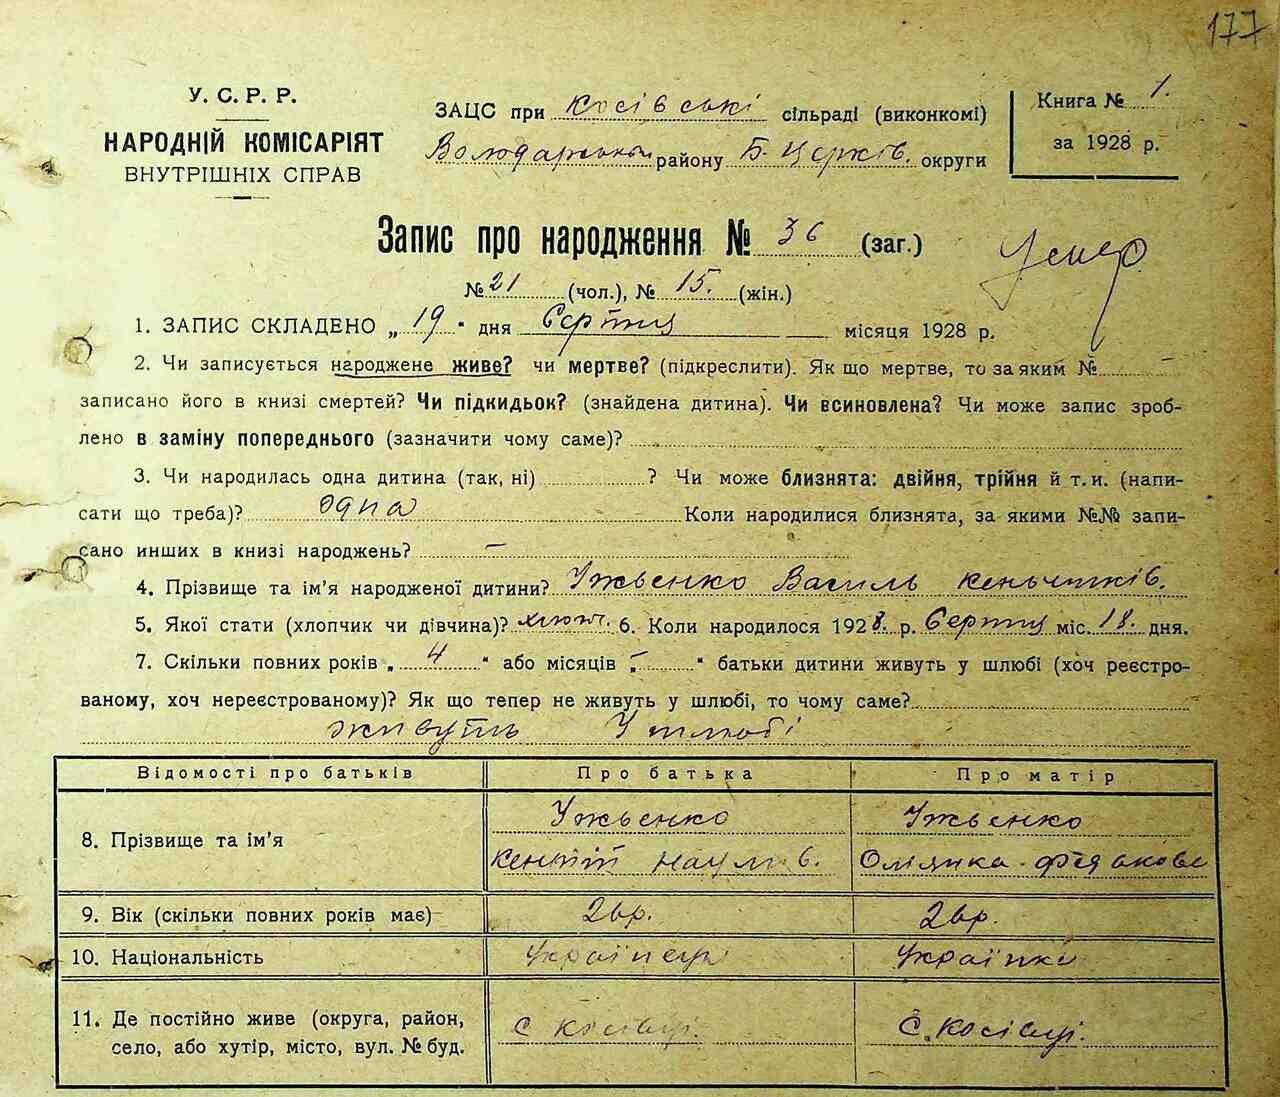 177
У. С. Р. Р.
НАРОДНІЙ КОМІСАРІЯТ
ВНУТРІШНІХ СПРАВ
ЗАЦС при Косівські сільраді (виконкомі)
Володарськом району Б. Церків. округи
Книга № 1.
за 1928 р.
Запис про народження № 36 (заг.)
№ 21 (чол.), № 15. (жін.)
Умер
1. ЗАПИС СКЛАДЕНО „ 19 " дня Серпня місяця 1928 р.
2. Чи записується народжене живе? чи мертве? (підкреслити). Як що мертве, то за яким №
записано його в книзі смертей? Чи підкидьок? (знайдена дитина). Чи всиновлена? Чи може запис зроб-
лено в заміну попереднього (зазначити чому саме)?
3. Чи народилась одна дитина (так, ні) ? Чи може близнята: двійня, трійня й т. и. (напи-
сати що треба)? одна Коли народилися близнята, за якими №№ запи-
сано инших в книзі народжень? —
4. Прізвище та ім'я народженої дитини? Ужвенко Василь
5. Якої статі (хлопчик чи дівчина)? хлопч. 6. Коли народилося 1928. р. Серпня міс. 18. дня.
7. Скільки повних років „ 4 " або місяців „ - " батьки дитини живуть у шлюбі (хоч реєстро-
ваному, хоч нереєстрованому)? Як що тепер не живуть у шлюбі, то чому саме?
живуть У шлюбі
Відомості про батьків Про батька Про матір
8. Прізвище та ім'я Ужвенко Ужвенко
Наумов.
9. Вік (скільки повних років має)
10. Національність Українець Українка
11. Де постійно живе (округа, район, с Косівці. с. Косівці.
село, або хутір, місто, вул. № буд.